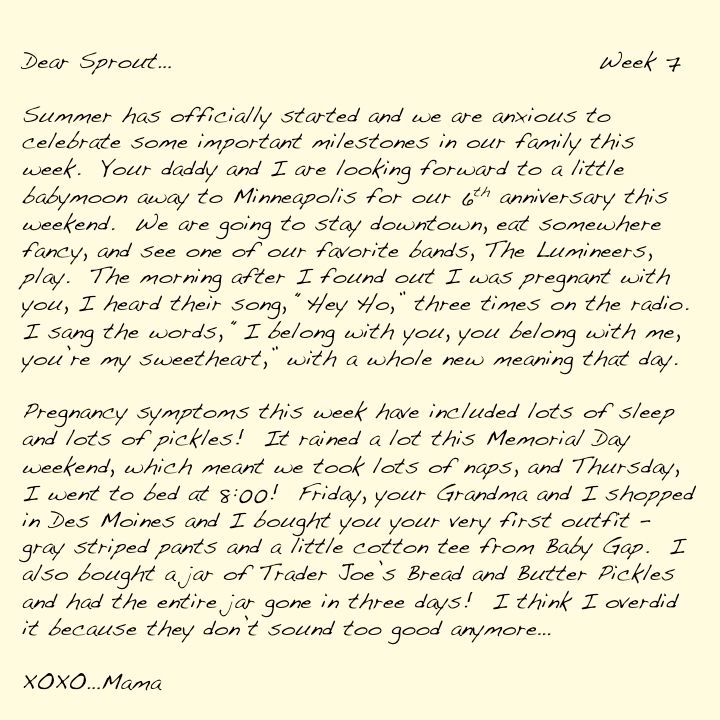 Dear Sprout... Week 7
Summer has officially started and we are anxious to
celebrate some important milestones in our family this
week. Your daddy and I are looking forward to a little
babymoon away to Minneapolis for our 6th anniversary this
weekend. We are going to stay downtown, eat somewhere
fancy, and see one of our favorite bands, The Lumineers,
play. The morning after I found out I was pregnant with
you, I heard their song, "Hey Ho," three times on the radio.
I sang the words, "I belong with you, you belong with me,
you're my sweetheart," with a whole new meaning that day.
Pregnancy symptoms this week have included lots of sleep
and lots of pickles! It rained a lot this Memorial Day
weekend, which meant we took lots of naps, and Thursday,
I went to bed at 8:00! Friday, your Grandma and I shopped
in Des Moines and I bought you your very first outfit -
gray striped pants and a little cotton tee from Baby Gap. I
also bought a jar of Trader Joe's Bread and Butter Pickles
and had the entire jar gone in three days! I think I overdid
it because they don't sound too good anymore...
XOXO...Mama